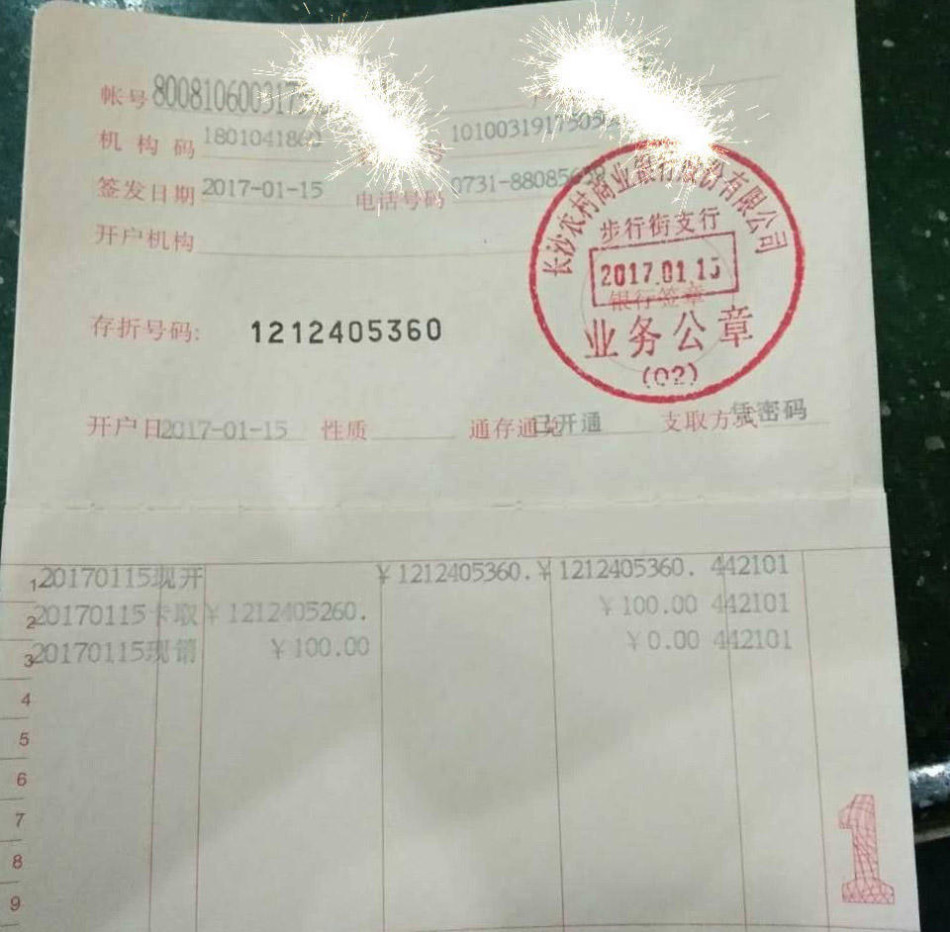 帐号 8008106009175
机构码 1801041860 号 1010031917505
签发日期 2017-01-15 电话号码 0731-88085
开户机构
长沙农村商业银行股份有限公司
步行街支行
2017.01.15
银行签章
业务公章
(02)
存折号码: 1212405360
开户日 2017-01-15 性质 通存通兑 已开通 支取方式 凭密码
1 20170115 现开 ¥1212405360. ¥1212405360. 442101
2 20170115 卡取 ¥1212405260. ¥100.00 442101
3 20170115 现销 ¥100.00 ¥0.00 442101
4
5
6
7
8
9
1